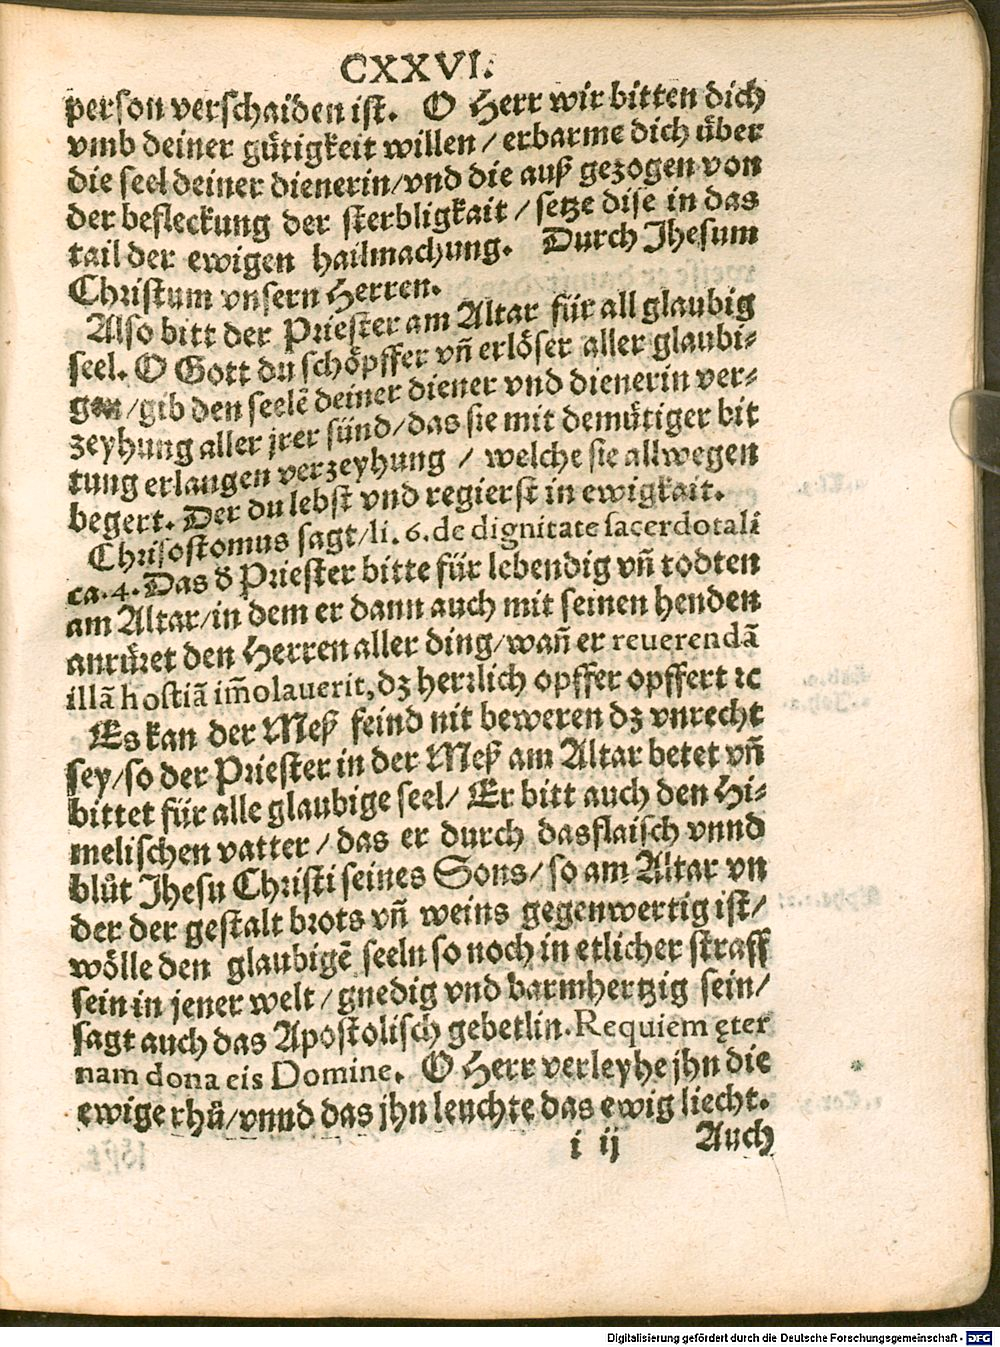 CXXVI.
person verschaiden ist. O Herr wir bitten dich
vmb deiner gütigkeit willen / erbarme dich über
die seel deiner dienerin/vnd die auß gezogen von
der befleckung der sterbligkait / setze dise in das
tail der ewigen hailmachung. Durch Jhesum
Christum vnsern Herren.
Also bitt der Priester am Altar für all glaubig
seel. O Gott du schöpffer vñ erlöser aller glaubi-
gen /gib den seelẽ deiner diener vnd dienerin ver-
zeyhung aller jrer sünd/das sie mit demütiger bit
tung erlangen verzeyhung / welche sie allwegen
begert. Der du lebst vnd regierst in ewigkait.
Chrisostomus sagt/li. 6. de dignitate sacerdotali
ca. 4. Das ď Priester bitte für lebendig vñ todten
am Altar/in dem er dann auch mit seinen henden
anrüret den Herren aller ding/wañ er reuerendã
illã hostiã im̃olauerit, dz herrlich opffer opffert ꝛc
Es kan der Meß feind nit beweren dz vnrecht
sey/so der Priester in der Meß am Altar betet vñ
bittet für alle glaubige seel/ Er bitt auch den Hi-
melischen vatter / das er durch das flaisch vnnd
blůt Jhesu Christi seines Sons/ so am Altar vn
der der gestalt brots vñ weins gegenwertig ist/
wölle den glaubigẽ seeln so noch in etlicher straff
sein in jener welt / gnedig vnd barmhertzig sein/
sagt auch das Apostolisch gebetlin. Requiem ęter
nam dona eis Domine. O Herr verleyhe jhn die
ewige rhů/vnnd das jhn leuchte das ewig liecht.
i ij Auch
Digitalisierung gefördert durch die Deutsche Forschungsgemeinschaft - DFG